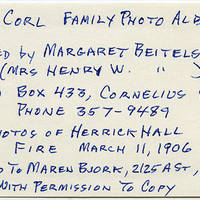 CORL FAMILY PHOTO ALB
ED BY MARGARET BEITELS
(MRS HENRY W. " )
BOX 433, CORNELIUS
PHONE 357-9489
HOTOS OF HERRICK HALL
FIRE MARCH 11, 1906
TO MAREN BJORK, 2125 A ST,
WITH PERMISSION TO COPY